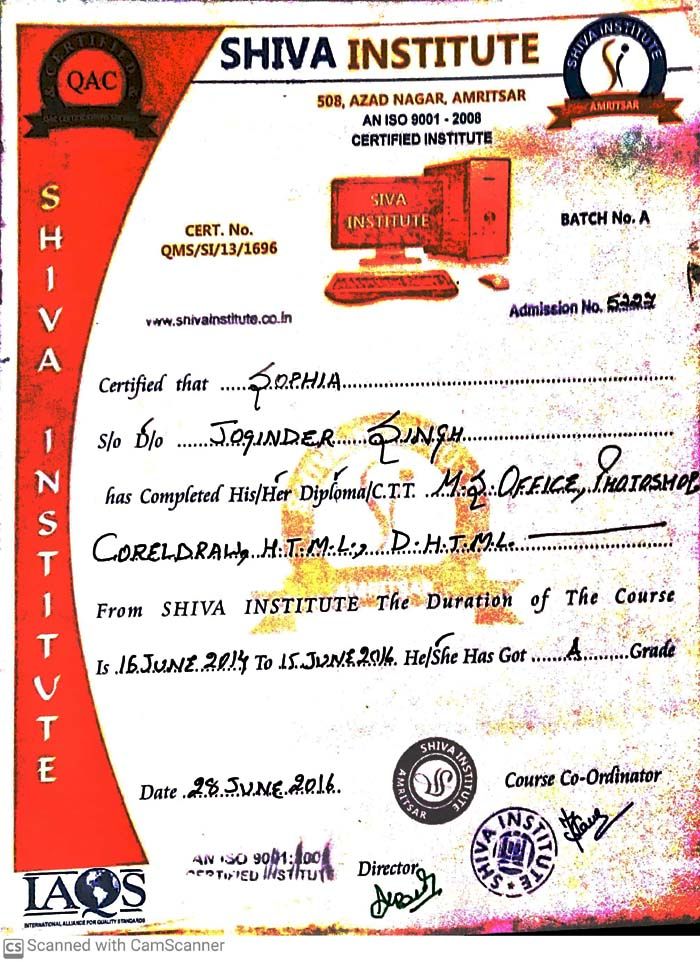 CERTIFIED
QAC
QAC Certifications Services
SHIVA INSTITUTE
SHIVA INSTITUTE
AMRITSAR
508, AZAD NAGAR, AMRITSAR
AN ISO 9001 - 2008
CERTIFIED INSTITUTE
SHIVA INSTITUTE
SIVA
INSTITUTE
CERT. No.
QMS/SI/13/1696
BATCH No. A
www.shivainstitute.co.in
Admission No. 5227
Certified that ..... SOPHIA
S/o D/o ..... JOGINDER SINGH
has Completed His/Her Diploma/C.T.T. M.S. OFFICE, PHOTOSHOP
CORELDRAW, H.T.M.L., D.H.T.M.L.
From SHIVA INSTITUTE The Duration of The Course
Is 16 JUNE 2014 To 15 JUNE 2016. He/She Has Got ....... A ....... Grade
Date 28 JUNE 2016.
SHIVA INSTITUTE
AMRITSAR
Course Co-Ordinator
SHIVA INSTITUTE
AN ISO 9001:2008
CERTIFIED INSTITUTE
Director
IAQS
INTERNATIONAL ALLIANCE FOR QUALITY STANDARDS
CS Scanned with CamScanner